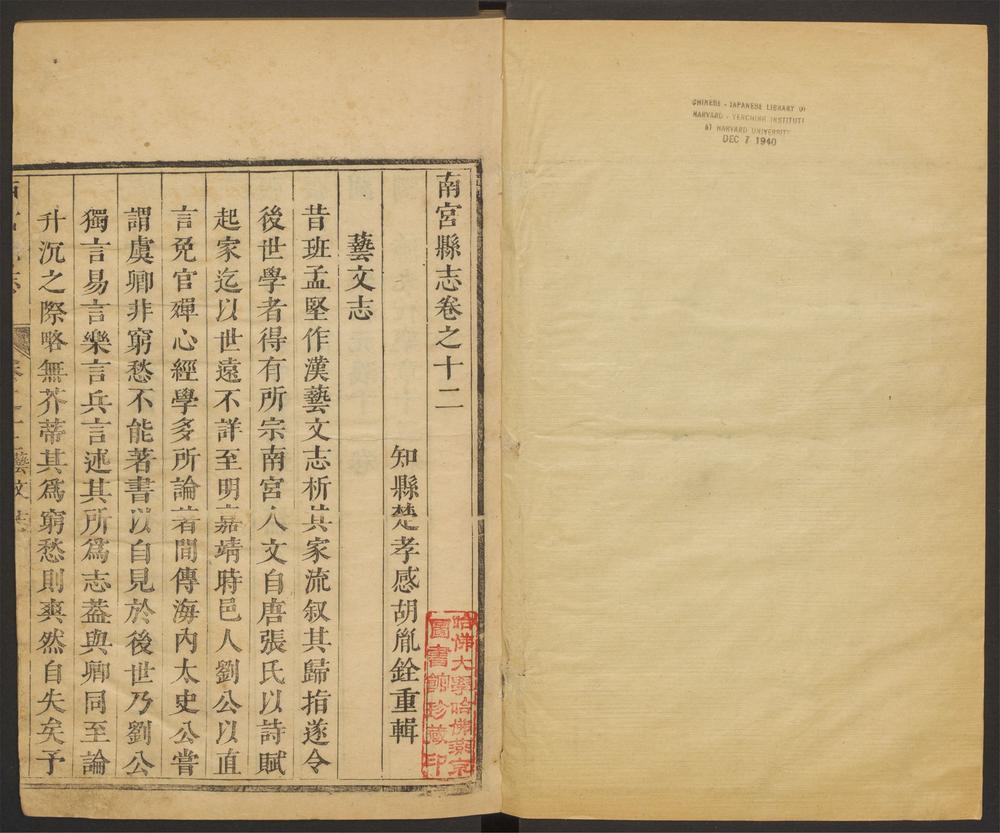 南宮縣志卷之十二
知縣楚孝感胡胤銓重輯
藝文志
昔班孟堅作漢藝文志析其家流叙其歸指遂令
後世學者得有所宗南宮人文自唐張氏以詩賦
起家迄以世遠不詳至明嘉靖時邑人劉公以直
言免官殫心經學多所論著間傳海內太史公嘗
謂虞卿非窮愁不能著書以自見於後世乃劉公
獨言易言樂言兵言述其所爲志蓋與卿同至論
升沉之際略無芥蒂其爲窮愁則爽然自失矣予
藝文志
哈佛大學哈佛燕京
圖書館珍藏印
CHINESE - JAPANESE LIBRARY OF
HARVARD - YENCHING INSTITUTE
AT HARVARD UNIVERSITY
DEC 7 1940